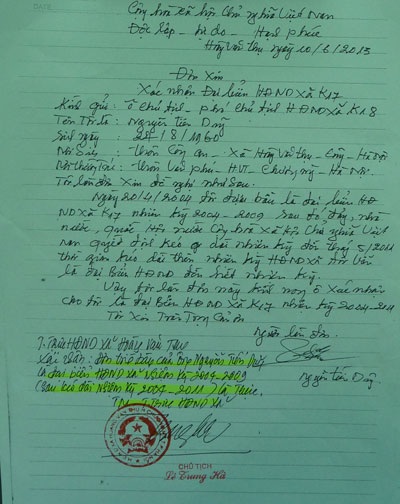 Cộng hoà xã hội Chủ nghĩa Việt Nam
Độc lập - tự do - Hạnh phúc
Hoàng Văn Thụ ngày 10/6/2013
Đơn Xin
Xác nhận Đại biểu HĐND Xã K17
Kính gửi: ô chủ tịch - phó chủ tịch HĐND Xã K18
Tên Tôi là: Nguyễn Tiến
Sinh ngày: /8/1960
Nơi Sinh: Thôn Công An - Xã Hoàng Văn Thụ - - Hà Nội
Thôn Văn phú - HVT - Chương mỹ - Hà Nội.
Tôi làm đơn Xin đề nghị như Sau.
Ngày 20/4/2004 tôi được bầu là đại biểu HĐ
ND Xã K17 nhiệm kỳ 2004 - 2009 sau đó đây, nhà
nước, quốc Hội nước Cộng hoà Xã Hội Chủ nghĩa Việt
nam quyết định kéo dài nhiệm kỳ đến tháng 5/2011
thời gian kéo dài thêm nhiệm kỳ HĐND Xã tôi vẫn
là đại Biểu HĐND đến hết nhiệm kỳ.
Vậy tôi làm đơn này kính mong ô Xác nhận
cho tôi là đại Biểu HĐND Xã K17 nhiệm kỳ 2004-2011
Tôi Xin Trân Trọng Cảm ơn
Người làm đơn
T. Trực HĐND Xã Hoàng Văn Thụ
Xác nhận: đơn trên đây của Ông Nguyễn Tiến
là đại biểu HĐND Xã Nhiệm kỳ 2004-2009
kéo dài Nhiệm kỳ 2004-2011) là Thực.
Nguyễn Tiến
TM T. Trực HĐND Xã
CHỦ TỊCH
Lê Trung Hà